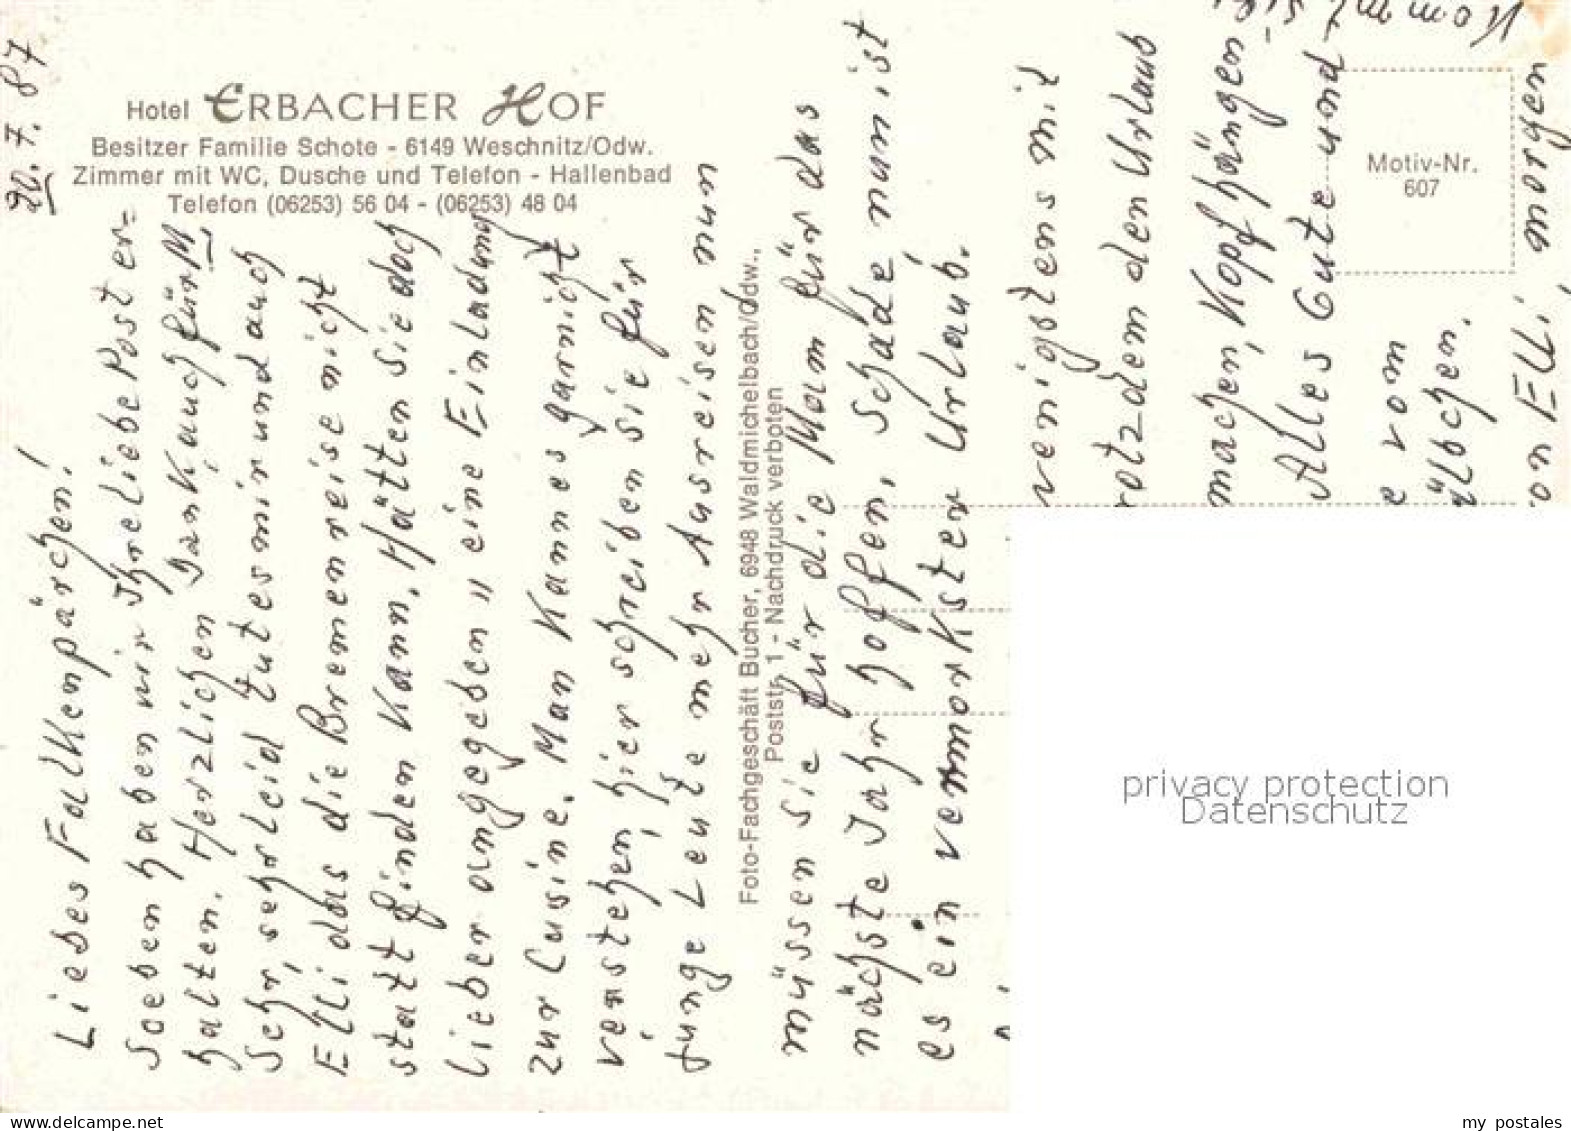 20.7.87
Hotel ERBACHER HOF
Besitzer Familie Schote - 6149 Weschnitz/Odw.
Zimmer mit WC, Dusche und Telefon - Hallenbad
Telefon (06253) 56 04 - (06253) 48 04
Liebes Falkenpärchen!
Soeben haben wir Ihre liebe Post er=
halten. Herzlichen Dank auch für M
Sehr, sehr leid tut es mir und auch
Elli das die Bremenreise nicht
statt finden kann. Hätten Sie doch
lieber angegeben " eine Einladung
zur Cusine. Man kann es garnicht
verstehen, hier schreiben sie für
junge Leute mehr Ausreisen nun
müssen sie für die Mam für das
nächste Jahr hoffen. Schade nun ist
es ein vermorkster Urlaub.
wenigstens mit
rotzdem den Urlaub
machen, Kopf hängen
Alles Gute und
e vom
älbchen.
on Elli, morgen
Kommt
Foto-Fachgeschäft Bucher, 6948 Waldmichelbach/Odw.,
Poststr. 1 - Nachdruck verboten
Motiv-Nr.
607
privacy protection
Datenschutz
www.delcampe.net
my_postales